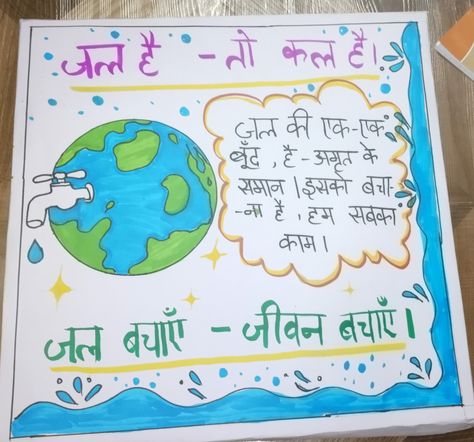 जल है - तो कल है।
जल की एक-एक
बूँद, है - अमृत के
समान। इसको बचा-
-ना है, हम सबका
काम।
जल बचाएँ - जीवन बचाएँ।